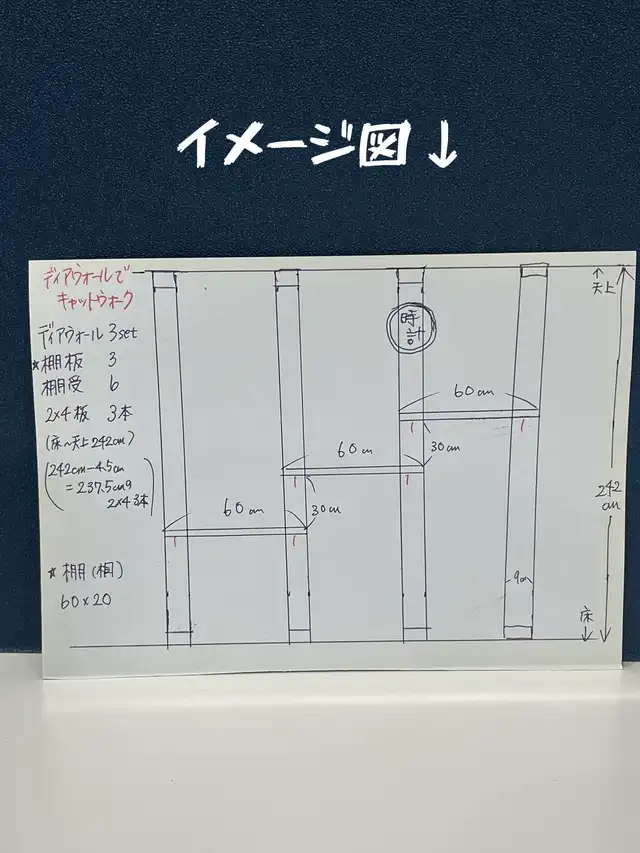 イメージ図↓
ディアウォールで
キャットウォーク
ディアウォール 3set
★棚板 3
棚受 6
2×4板 3本
(床~天上242cm)
(242cm-4.5cm
=237.5cmの
2×4 3本)
★ 棚(桐)
60×20
時計
60cm
30cm
60cm
30cm
60cm
9cm
↑
天上
242
cm
床
↓